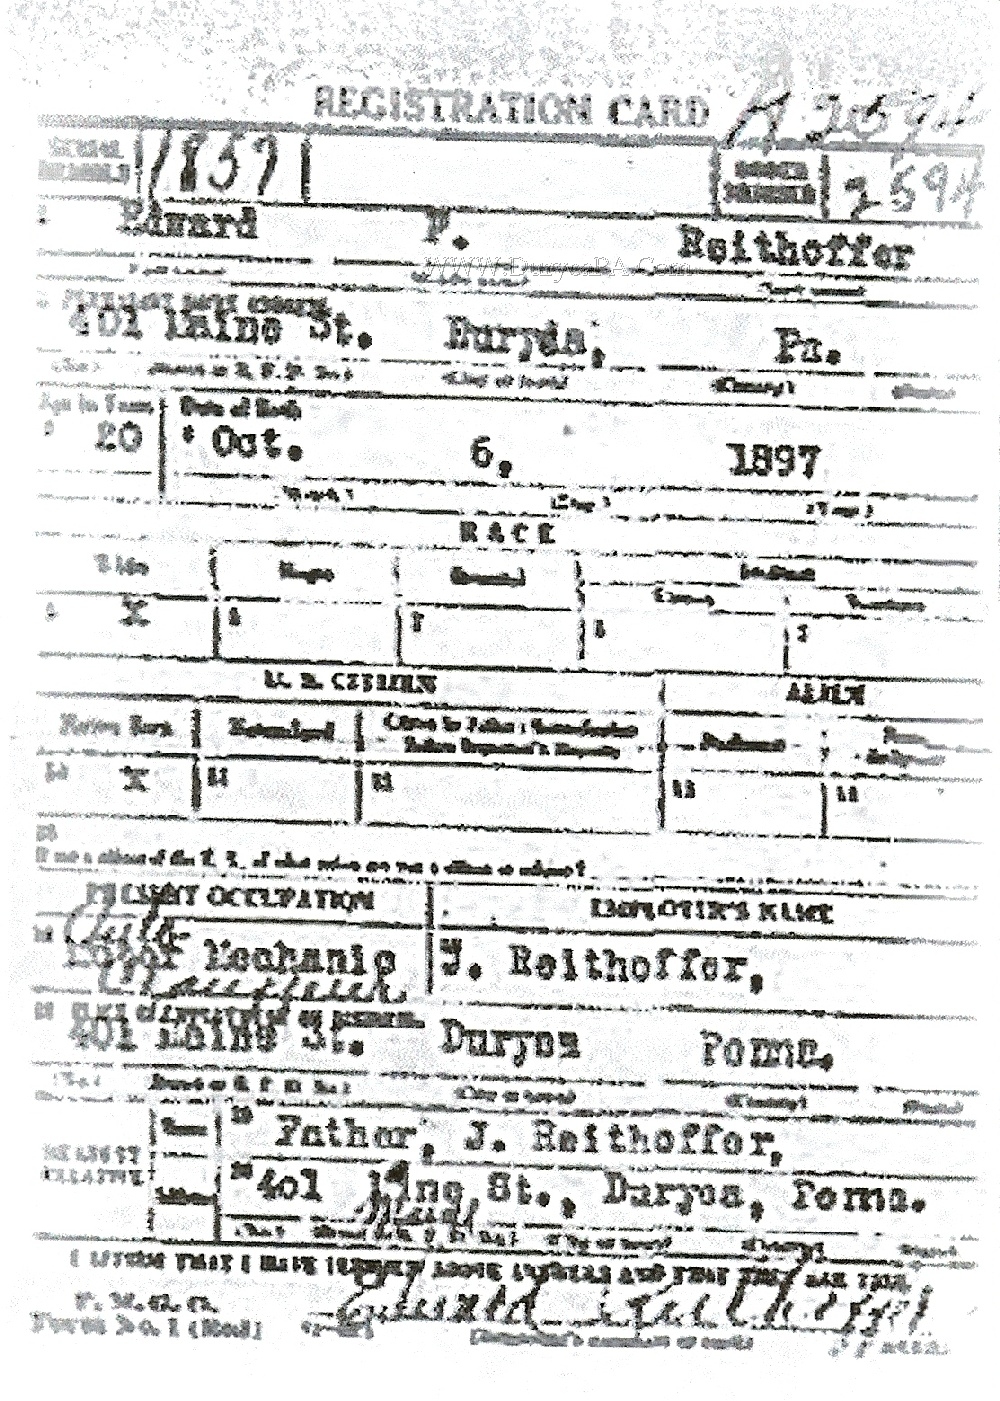 REGISTRATION CARD A 2594
SERIAL NUMBER 1857 ORDER NUMBER 2594
Edward P. Reithoffer
WWW.DuryeaPA.Com
PERMANENT HOME ADDRESS
401 Maine St. Duryea, Pa.
(No.) (Street or R. F. D. No.) (City or town) (County) (State)
Age in Years Date of Birth
20 Oct. 6, 1897
(Month) (Day) (Year)
RACE
White Negro Oriental Indian
Citizen Noncitizen
X
U. S. CITIZEN ALIEN
Native Born Naturalized Citizen by Father's Naturalization Before Registrant's Majority Declarant Non-declarant
10 X 11 12 13 14
15
If not a citizen of the U. S., of what nation are you a citizen or subject?
PRESENT OCCUPATION EMPLOYER'S NAME
16 Auto
Motor Mechanic J. Reithoffer,
PLACE OF EMPLOYMENT OR BUSINESS
401 Maine St. Duryea Penna.
(No.) (Street or R. F. D. No.) (City or town) (County) (State)
NEAREST RELATIVE
Name 19 Father, J. Reithoffer,
Address 20 401 St., Duryea, Penna.
(No.) (Street or R. F. D. No.) (City or town) (County) (State)
I AFFIRM THAT I HAVE VERIFIED ABOVE ANSWERS AND THAT THEY ARE TRUE
P. M. G. O.
Form No. 1 (Red) Edward Reithoffer
(Registrant's signature or mark)